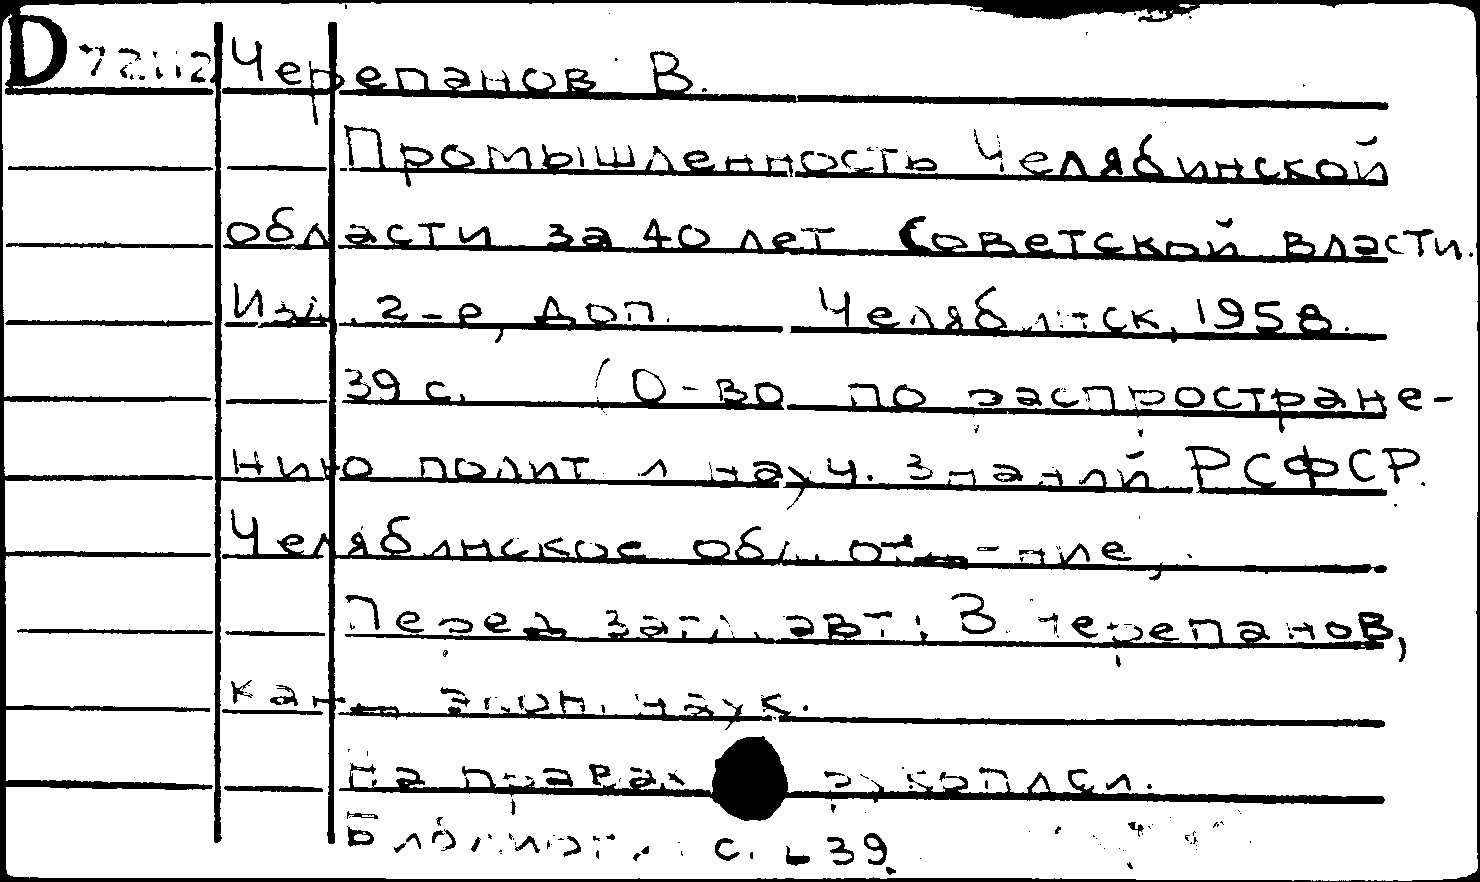 D 72112 Черепанов В.
Промышленность Челябинской
области за 40 лет Советской власти.
Изд. 2-е, доп. Челябинск, 1958.
39 с. (О-во по распростране-
нию полит и науч. знаний РСФСР.
Челябинское обл. отд-ние,
Перед загл. авт.: В. Черепанов,
канд экон. наук.
На правах рукописи.
Библиогр.: с. 39.